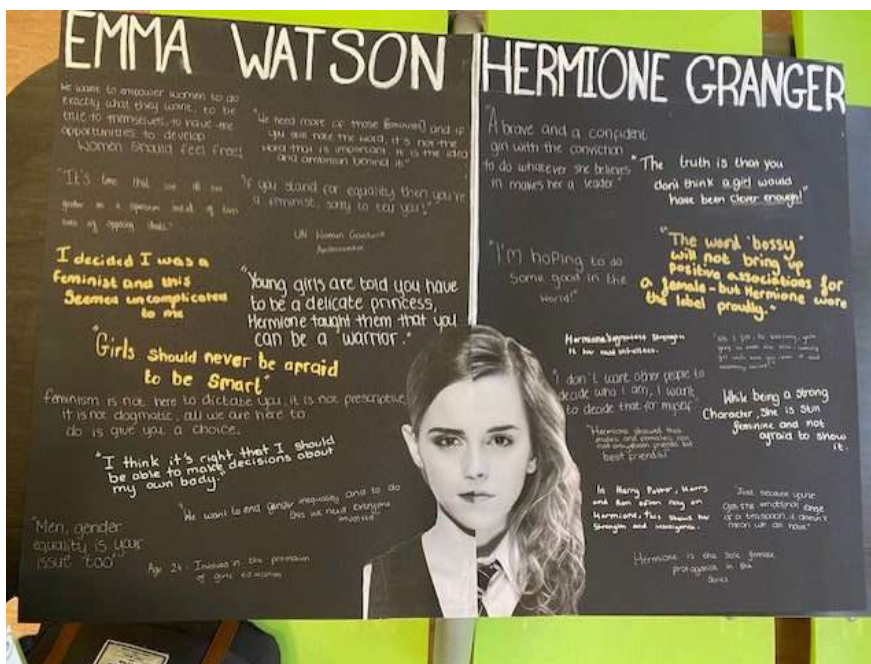 EMMA WATSON
We want to empower women to do
exactly what they want, to be
true to themselves, to have the
opportunities to develop
Women should feel free!
"We need more of those [feminists] and if
you still hate the word, it's not the
word that is important. It is the idea
and ambition behind it"
"It's time that we all see
gender as a spectrum instead of two
sets of opposing ideals."
"If you stand for equality then you're
a feminist, sorry to tell you!"
UN Woman Goodwill
Ambassador
I decided I was a
feminist and this
seemed uncomplicated
to me
"Young girls are told you have
to be a delicate princess,
Hermione taught them that you
can be a warrior."
"Girls should never be apraid
to be smart"
feminism is not here to dictate you, it is not prescriptive,
it is not dogmatic, all we are here to
do is give you a choice.
"I think it's right that I should
be able to make decisions about
my own body."
"We want to end gender inequality and to do
this we need everyone
involved"
"Men, gender
equality is your
issue too"
Age 24 - Involved in the promotion
of girls education
HERMIONE GRANGER
"A brave and a confident
girl with the conviction
to do whatever she believes
in makes her a leader"
"The truth is that you
don't think a girl would
have been clever enough!"
"I'm hoping to do
some good in the
world!"
"The word 'bossy'
will not bring up
positive associations for
a female - but Hermione wore
the label proudly."
Hermione's greatest strength
is her intellect.
"I don't want other people to
decide who I am, I want
to decide that for myself"
While being a strong
character, she is still
feminine and not
afraid to show
it.
"Hermione showed that
males and females can
not only be friends but
best friends!"
In Harry Potter, Harry
and Ron often rely on
Hermione, this shows her
strength and intelligence.
"Just because you've
got the emotional range
of a teaspoon, it doesn't
mean we all have"
Hermione is the sole female
protagonist in the
series